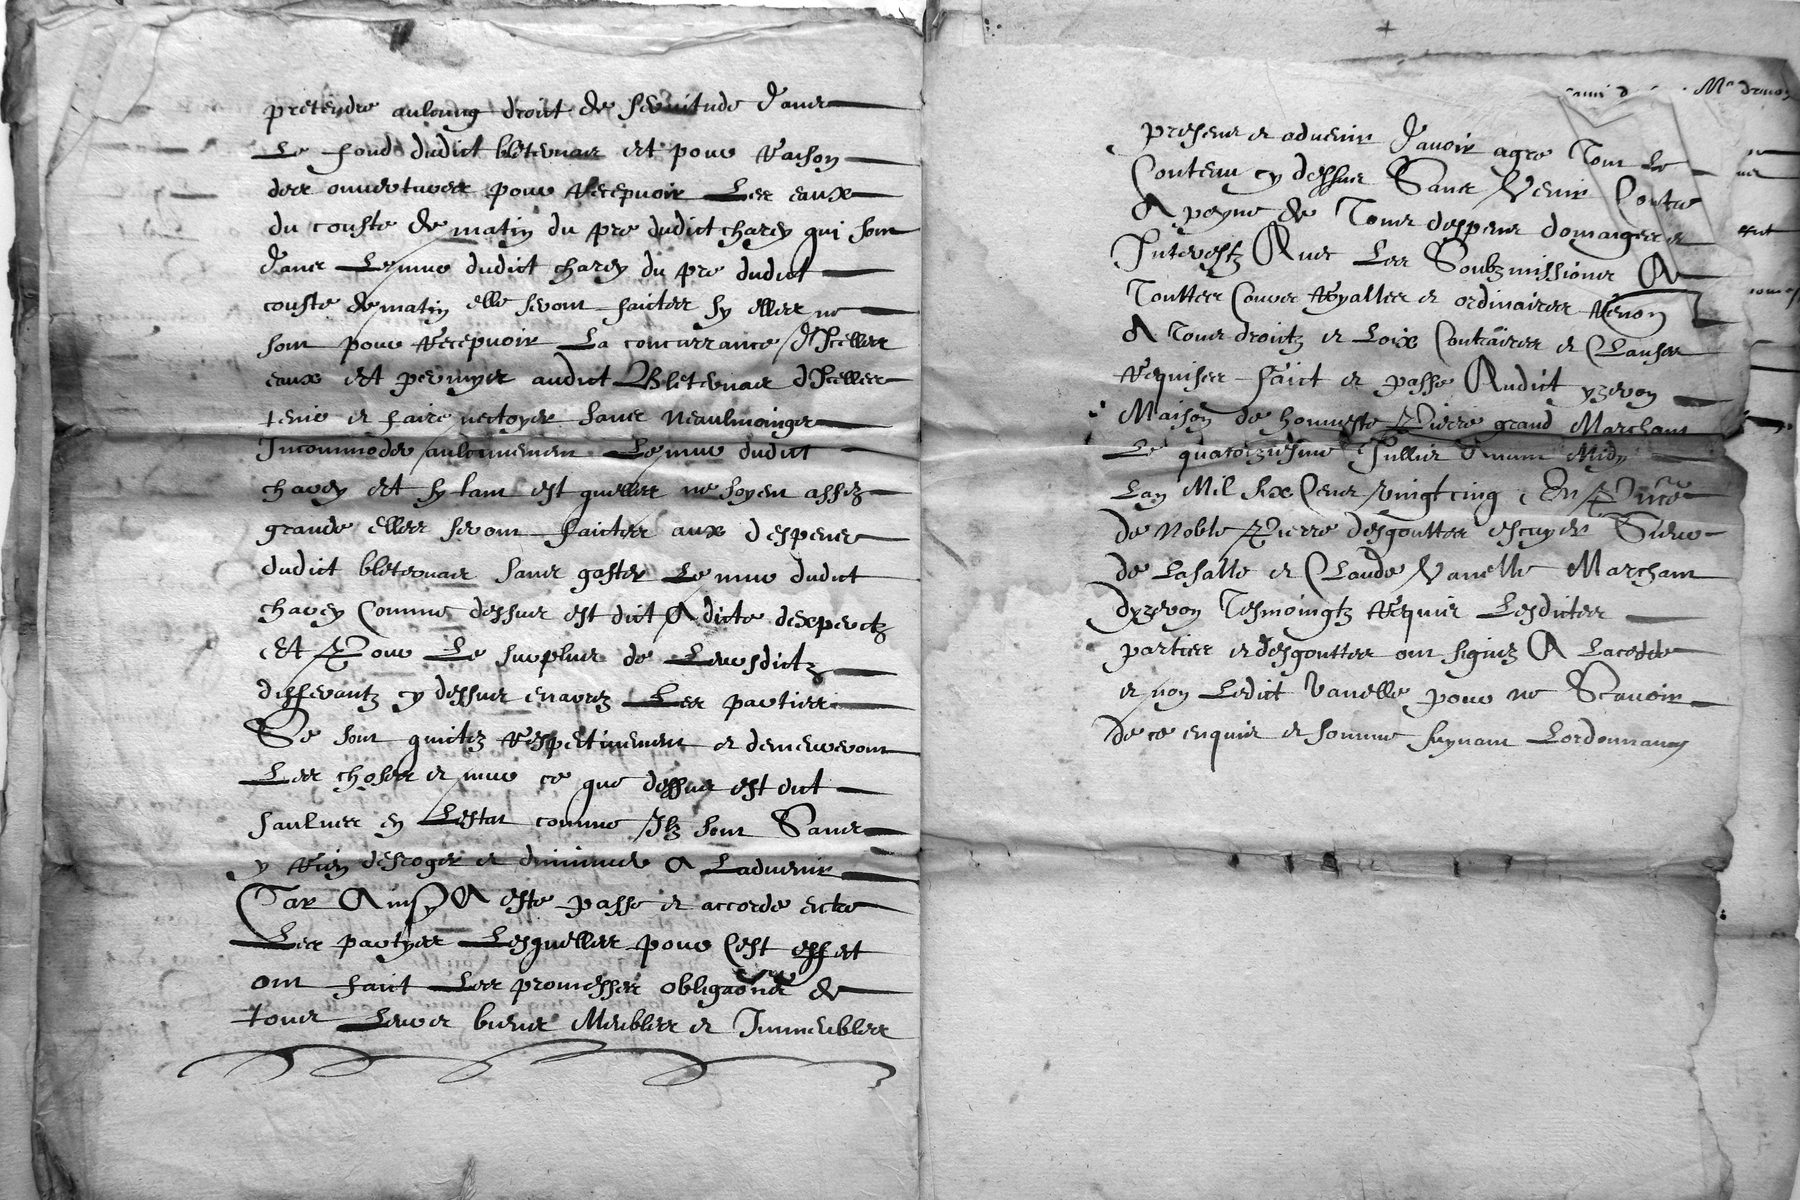 pretendre aulcung droict de servitude dans
Le fond dudict bletenair Et pour raison
des ouvertures pour recepvoir Les eaux
du couste de matin du pre dudict charey qui sont
dans Le mur dudict charey du pre dudict
couste de matin elle seront faictes sy elles ne
sont pour recepvoir La concurrance d'Icelles
eaux Et permyer audict Bletenair d'Icelles
tenir et faire nectoyer sans neaulmoinges
Incommoder aulcunement Le mur dudict
charey Et sy tant est quelles ne soyent assez
grande elles seront faictes aux despens
dudict bletenair sans gaster Le mur dudict
charey Comme dessus est dict A dicte dexpertz
Et Pour Le surplus de Leursdictz
differantz cy dessus enarrez Les parties
Se sont quictez respectivement et demeureront
Les choses et mur ce que dessus est dict
saulves en Lestat comme Ilz sont Sans
y rien desroger et diminuer A Ladvenir
Car Ainsy A este passe et accorde entre
Les partyes Lesquelles pour Cest effect
ont faict Les promesses obligaons de
tous Leurs biens Meubles et Immeubles
presens et advenir d'avoir agre Tout Le
Contenu cy dessus Sans Venir Contre
A peyne de Tous despens domaiges et
Interestz Avec Les Soubzmissions A
Touttes Cours Royalles et ordinaires renon
A Tous droictz et Loix Contraires et Clauses
requises Faict et passe Audict yzeron
Maison de honneste Pierre grand Marchant
Le quatorziesme Jullier Avant Midy
Lan Mil six Cens vingt cinq En Pnce
de Noble Pierre desgouttes escuyer Sieur
de Lasalle et Claude Vanelle Marchant
dyzeron Tesmoingtz requis Lesdictes
parties et desgouttes ont signez A Lacedde
et non Ledict Vanelle pour ne Scavoir
de ce enquis et somme suyvant Lordonnance